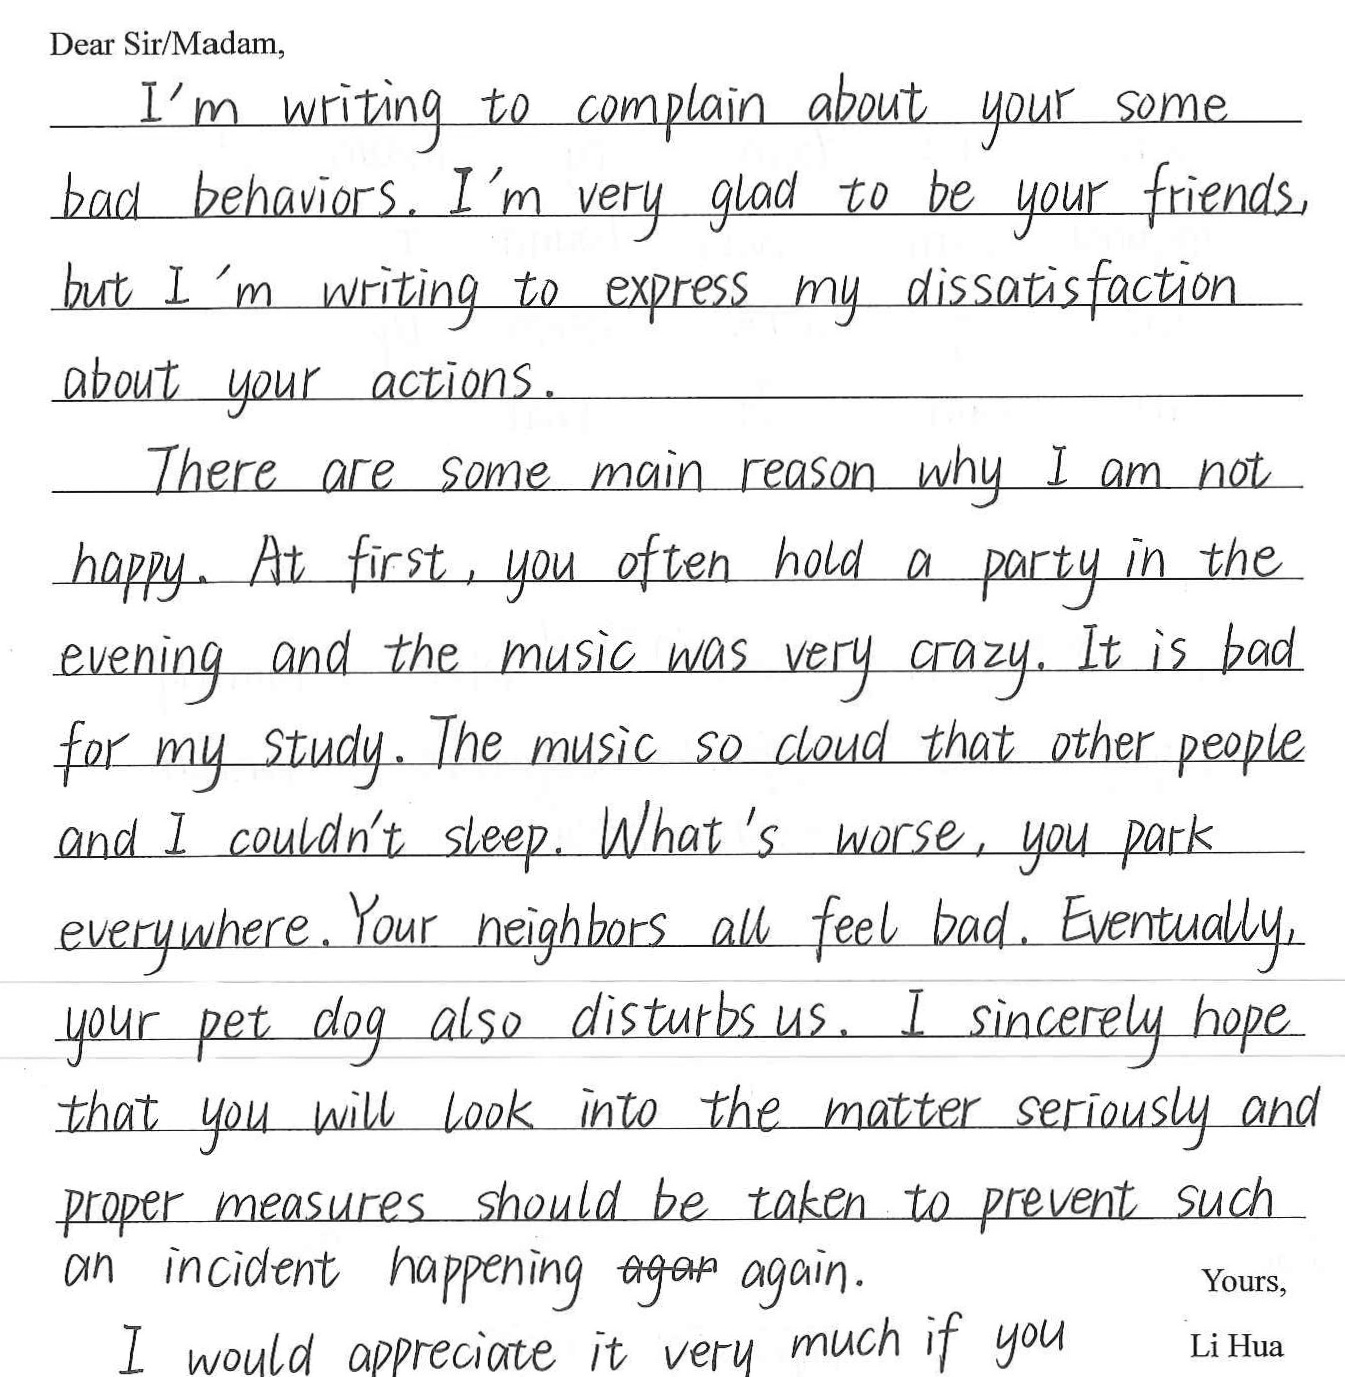 Dear Sir/Madam,
I'm writing to complain about your some
bad behaviors. I'm very glad to be your friends,
but I'm writing to express my dissatisfaction
about your actions.
There are some main reason why I am not
happy. At first, you often hold a party in the
evening and the music was very crazy. It is bad
for my study. The music so cloud that other people
and I couldn't sleep. What's worse, you park
everywhere. Your neighbors all feel bad. Eventually,
your pet dog also disturbs us. I sincerely hope
that you will look into the matter seriously and
proper measures should be taken to prevent such
an incident happening agar again.
Yours,
I would appreciate it very much if you
Li Hua